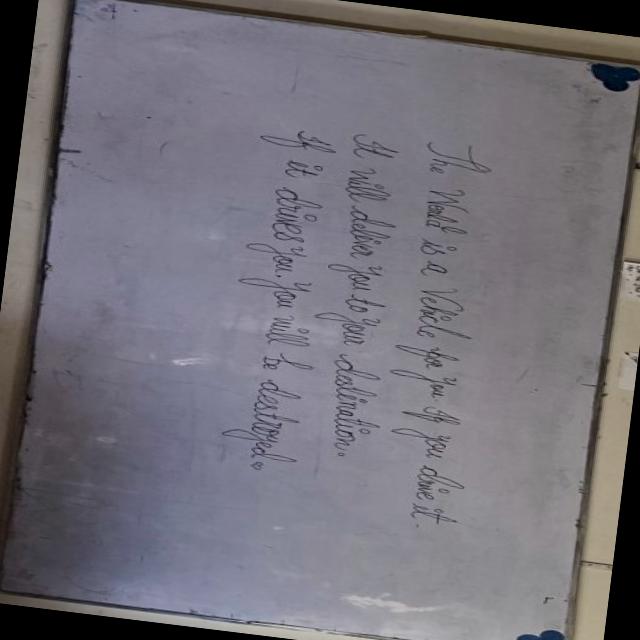 The World is a Vehicle for you If you drive it
It will deliver you to your destination."
If it drives you, you will be destroyed."